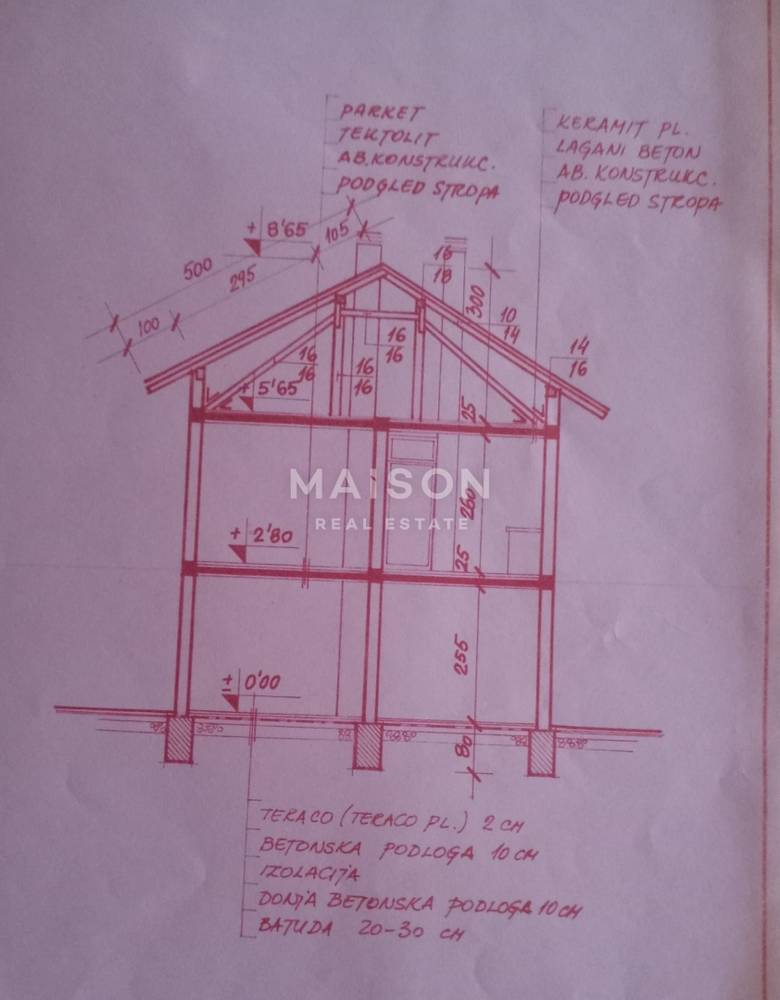 PARKET
TEKTOLIT
AB. KONSTRUKC.
PODGLED STROPA
KERAMIT PL.
LAGANI BETON
AB. KONSTRUKC.
PODGLED STROPA
+ 8'65
105
500
295
100
16
18
300
10
14
16
16
14
16
16
16
16
16
+ 5'65
25
MAISON
REAL ESTATE
260
+ 2'80
25
255
± 0'00
80
TERACO (TERACO PL.) 2 CM
BETONSKA PODLOGA 10 CM
IZOLACIJA
DONJA BETONSKA PODLOGA 10 CM
BATUDA 20-30 CM